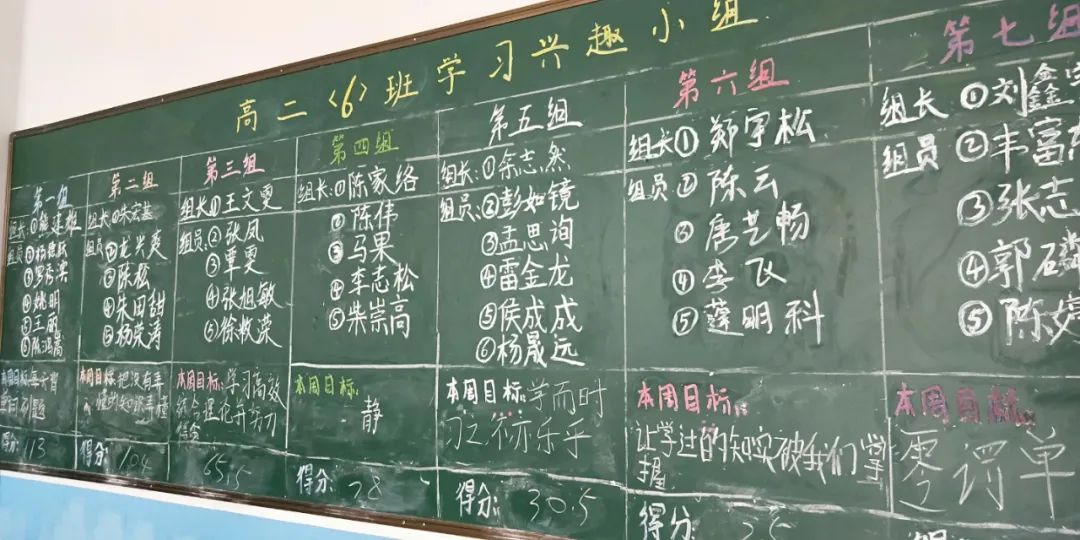 高二〈6〉班学习兴趣小组
第一组
组长:①
组员:②
③
④姚明
⑤王丽
⑥张鸿嵩
本周目标:每天背
得分:113
第二组
组长①朱宏基
组员:②龙兴爽
③陈松
④朱田甜
⑤杨荣涛
本周目标:把没有弄
懂的知识弄懂
得分:104
第三组
组长①王文雯
组员:②张凤
③覃雯
④张旭敏
⑤徐敉荣
本周目标:学习高效
得分:65.5
第四组
组长:①陈家络
②陈伟
③马果
④李志松
⑤柴崇高
本周目标:
静
得分:28
第五组
组长:①余志然
组员:②彭如镜
③孟思询
④雷金龙
⑤侯成成
⑥杨晟远
本周目标:学而时
习之不亦乐乎
得分:30.5
第六组
组长①郑宇松
组员②陈云
③唐艺畅
④李飞
⑤蓬明科
本周目标:
让学过的知识被我们掌
握
得分:
第七组
组长①刘鑫
组员②丰富
③张志
④郭磷
⑤陈婷
本周目标:
零罚单